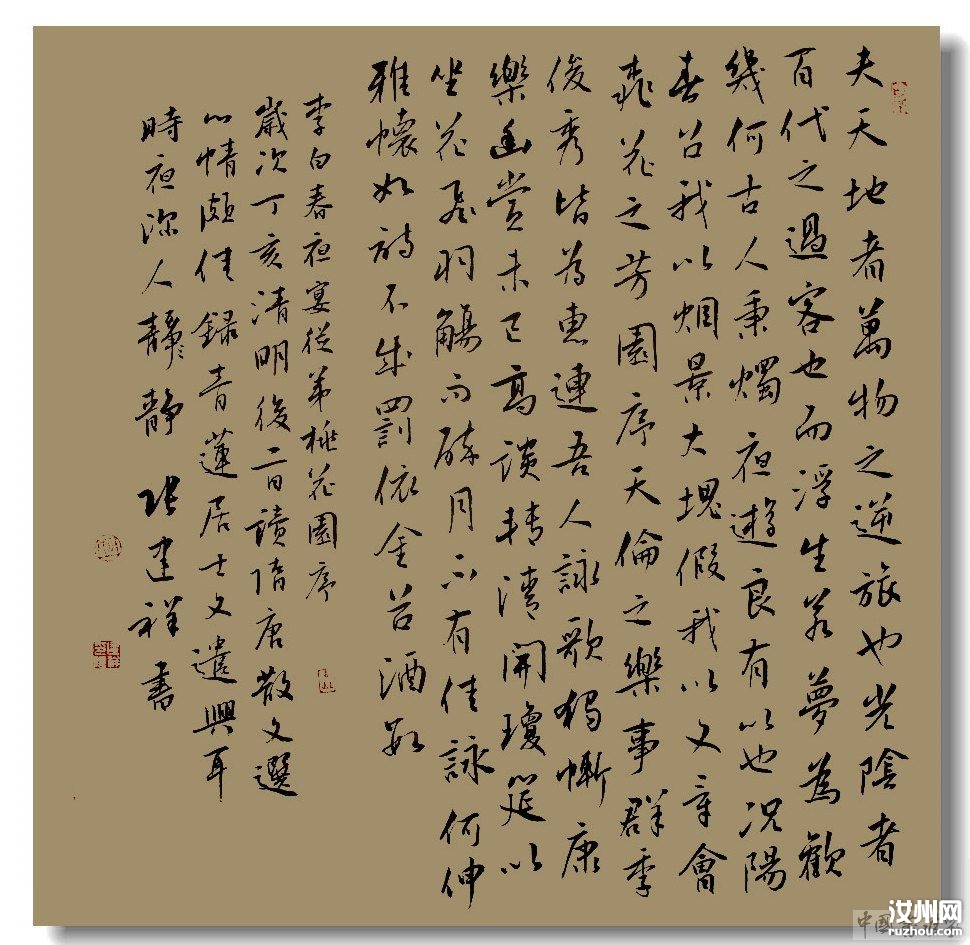 夫天地者萬物之逆旅也光陰者
百代之過客也而浮生若夢為歡
幾何古人秉燭夜遊良有以也况陽
春召我以烟景大塊假我以文章會
桃花之芳園序天倫之樂事群季
俊秀皆為惠連吾人詠歌獨慚康
樂幽賞未已高談轉清開瓊筵以
坐花飛羽觴而醉月不有佳詠何伸
雅懷如詩不成罰依金谷酒數
李白春夜宴從弟桃花園序
歲次丁亥清明後二日讀隋唐散文選
心情頗佳錄青蓮居士文遣興耳
時夜深人靜靜 張建祥書
汝州网
ruzhou.com